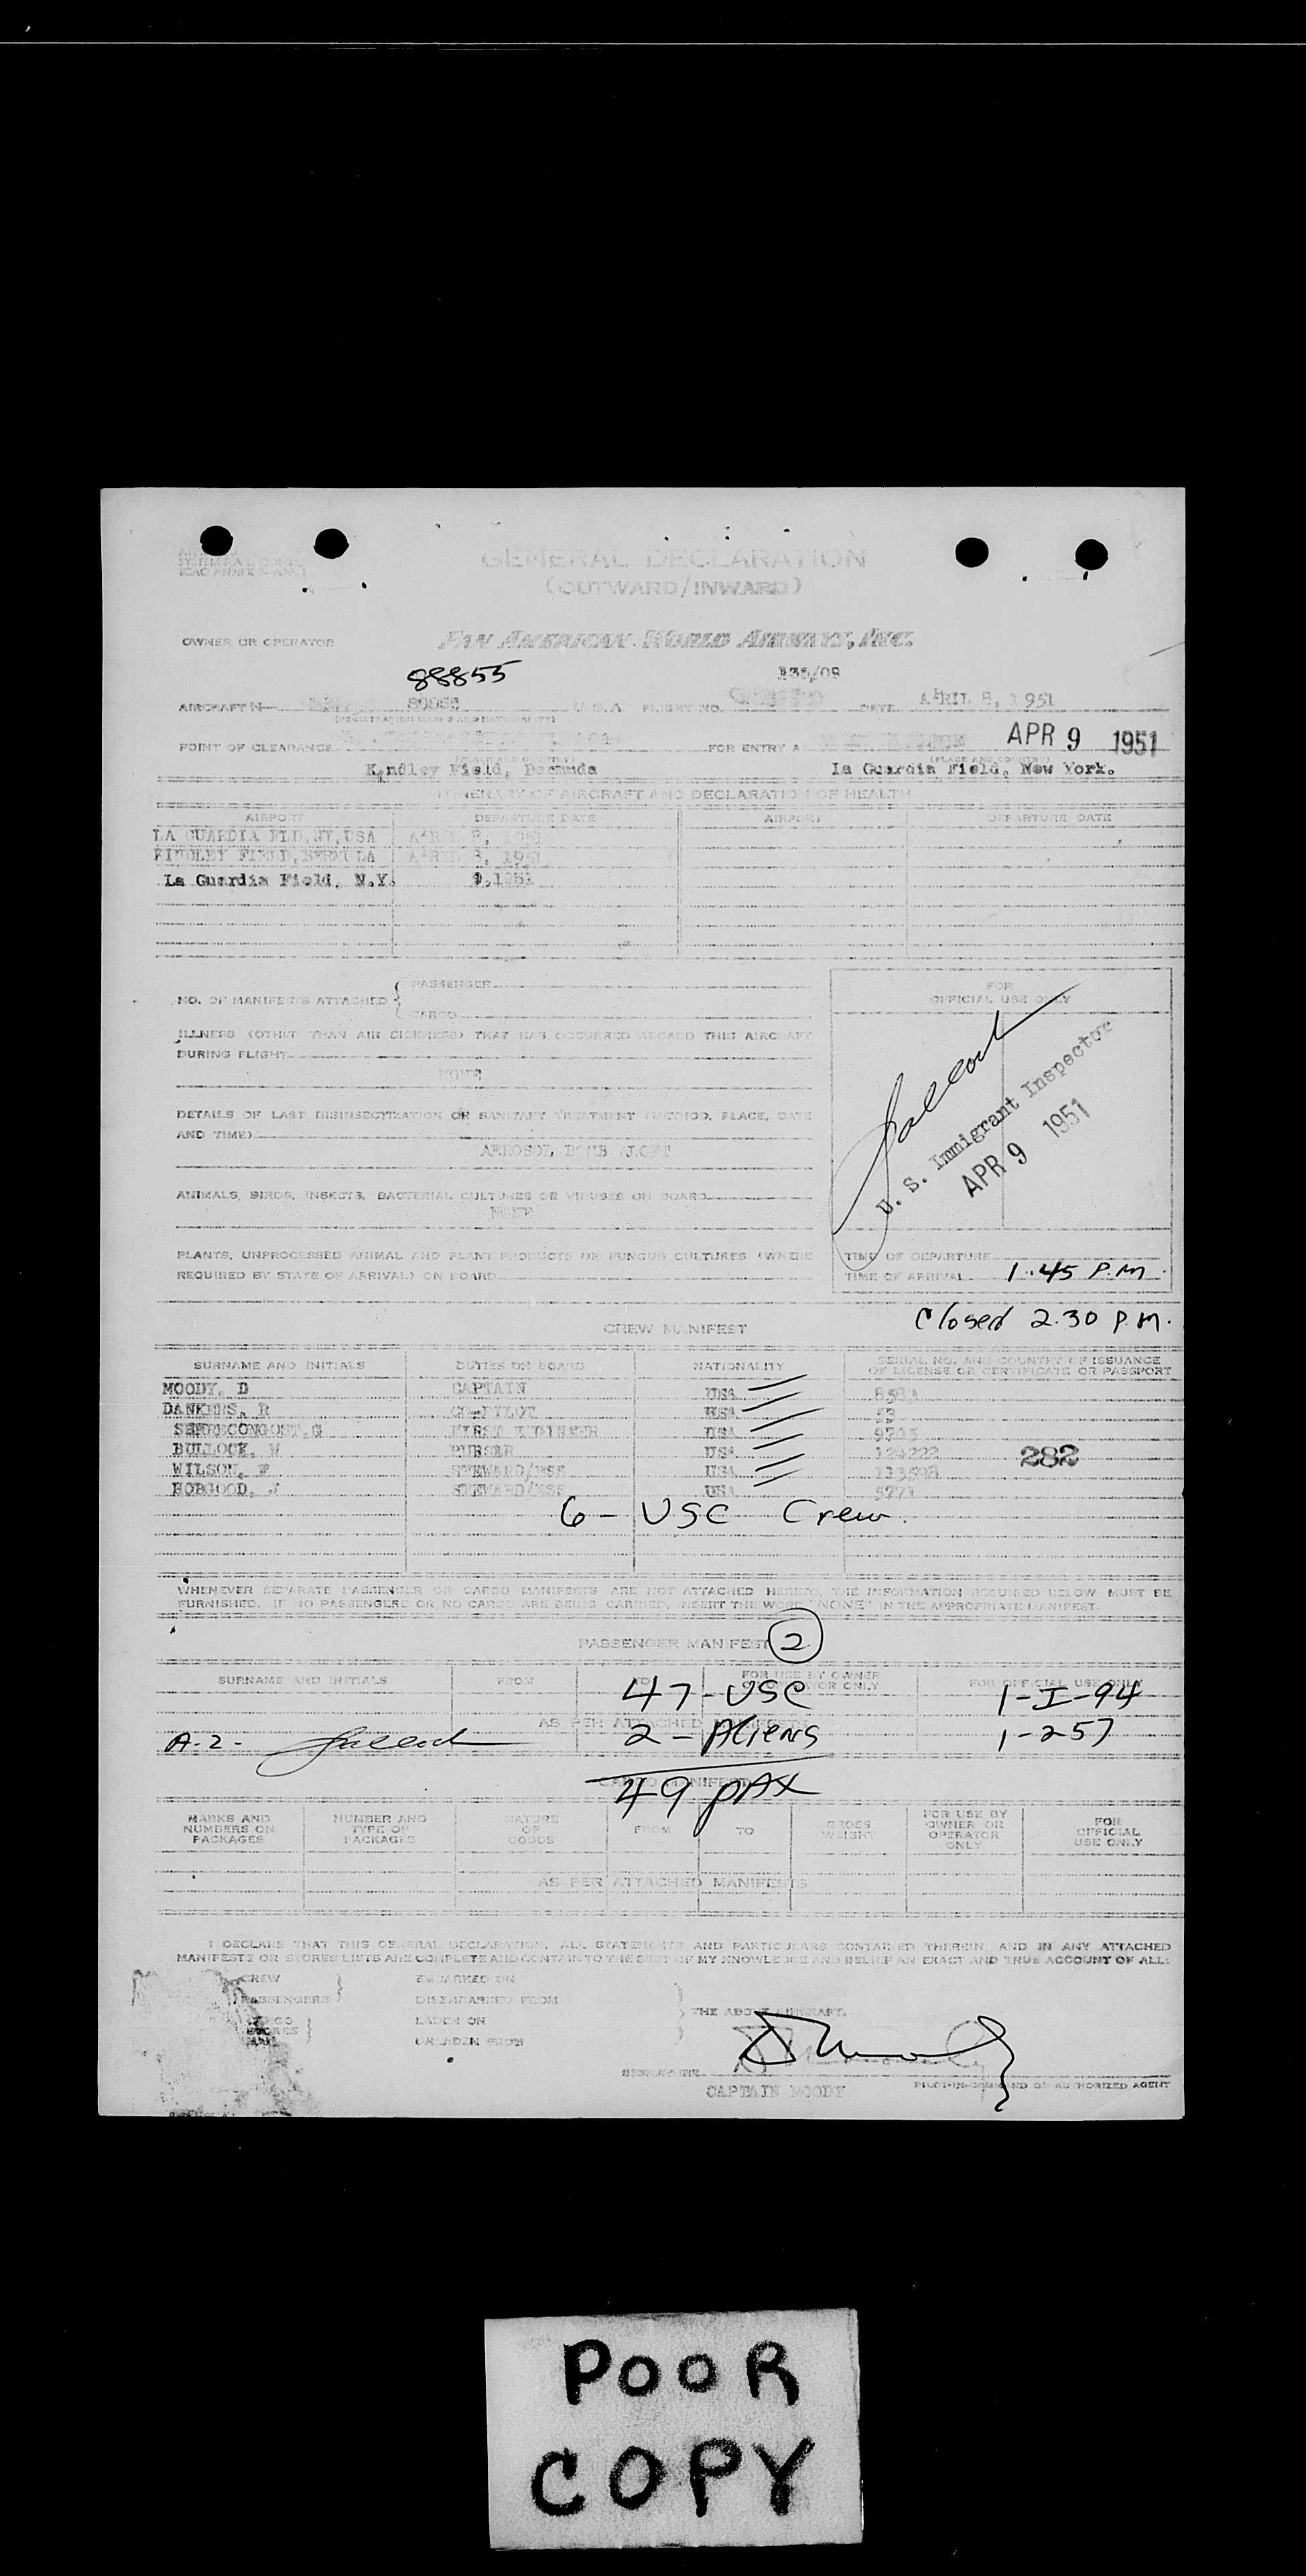 GENERAL DECLARATION
(OUTWARD/INWARD)
OWNER OR OPERATOR PAN AMERICAN WORLD AIRWAYS, INC.
88855 135/09
AIRCRAFT N— U.S.A. FLIGHT NO. DATE APRIL 8, 1951
POINT OF CLEARANCE FOR ENTRY A APR 9 1951
Kindley Field, Bermuda La Guardia Field, New York.
ITINERARY OF AIRCRAFT AND DECLARATION OF HEALTH
AIRPORT DEPARTURE DATE AIRPORT DEPARTURE DATE
LA GUARDIA FLD, NY, USA APRIL 8, 1951
KINDLEY FIELD, BERMUDA APRIL 8, 1951
La Guardia Field, N.Y. 9, 1951
NO. OF MANIFESTS ATTACHED { PASSENGER
CARGO
FOR
OFFICIAL USE ONLY
ILLNESS (OTHER THAN AIR SICKNESS) THAT HAS OCCURRED ABOARD THIS AIRCRAFT
DURING FLIGHT
NONE
DETAILS OF LAST DISINSECTIZATION OR SANITARY TREATMENT (METHOD, PLACE, DATE
AND TIME)
AEROSOL BOMB ALOFT
U. S. Immigrant Inspector
APR 9 1951
ANIMALS, BIRDS, INSECTS, BACTERIAL CULTURES OR VIRUSES ON BOARD
NONE
PLANTS, UNPROCESSED ANIMAL AND PLANT PRODUCTS OR FUNGUS CULTURES (WHERE
REQUIRED BY STATE OF ARRIVAL) ON BOARD
TIME OF DEPARTURE
TIME OF ARRIVAL 1.45 P.M.
Closed 2.30 P.M.
CREW MANIFEST
SURNAME AND INITIALS DUTIES ON BOARD NATIONALITY SERIAL NO. AND COUNTRY OF ISSUANCE
OF LICENSE OR CERTIFICATE OR PASSPORT
MOODY, D CAPTAIN USA
DANKERS, R CO-PILOT USA
SHRECONGOST, G FIRST ENGINEER USA
BULLOCK, W PURSER USA 124222 282
WILSON, F STEWARD/ESS USA 113508
HOBGOOD, J STEWARD/ESS USA
6 - USC Crew.
WHENEVER SEPARATE PASSENGER OR CARGO MANIFESTS ARE NOT ATTACHED HERETO, THE INFORMATION REQUIRED BELOW MUST BE
FURNISHED. IF NO PASSENGERS OR NO CARGO ARE BEING CARRIED, INSERT THE WORD "NONE" IN THE APPROPRIATE MANIFEST.
PASSENGER MANIFEST 2
SURNAME AND INITIALS FROM TO FOR USE BY OWNER
OR OPERATOR ONLY FOR OFFICIAL USE ONLY
47 - USC 1-I-94
AS PER ATTACHED MANIFESTS
A-2- 2 - Aliens 1-257
CARGO MANIFEST
49 PAX
MARKS AND
NUMBERS ON
PACKAGES
NUMBER AND
TYPE OF
PACKAGES
NATURE
OF
GOODS
FROM
TO
GROSS
WEIGHT
FOR USE BY
OWNER OR
OPERATOR
ONLY
FOR
OFFICIAL
USE ONLY
AS PER ATTACHED MANIFESTS
I DECLARE THAT THIS GENERAL DECLARATION, ALL STATEMENTS AND PARTICULARS CONTAINED THEREIN, AND IN ANY ATTACHED
MANIFESTS OR STORES LISTS ARE COMPLETE AND CONTAIN TO THE BEST OF MY KNOWLEDGE AND BELIEF AN EXACT AND TRUE ACCOUNT OF ALL:
CREW EMBARKED ON
PASSENGERS DISEMBARKED FROM
CARGO LADEN ON
STORES UNLADEN FROM
THE ABOVE AIRCRAFT.
SIGNATURE
PILOT-IN-COMMAND OR AUTHORIZED AGENT
CAPTAIN MOODY
POOR
COPY